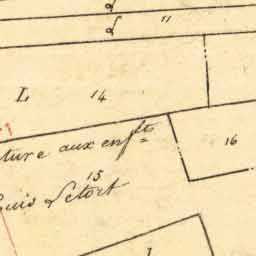 L
L "
L 14
ture aux enfts
16
15
ouis Letort